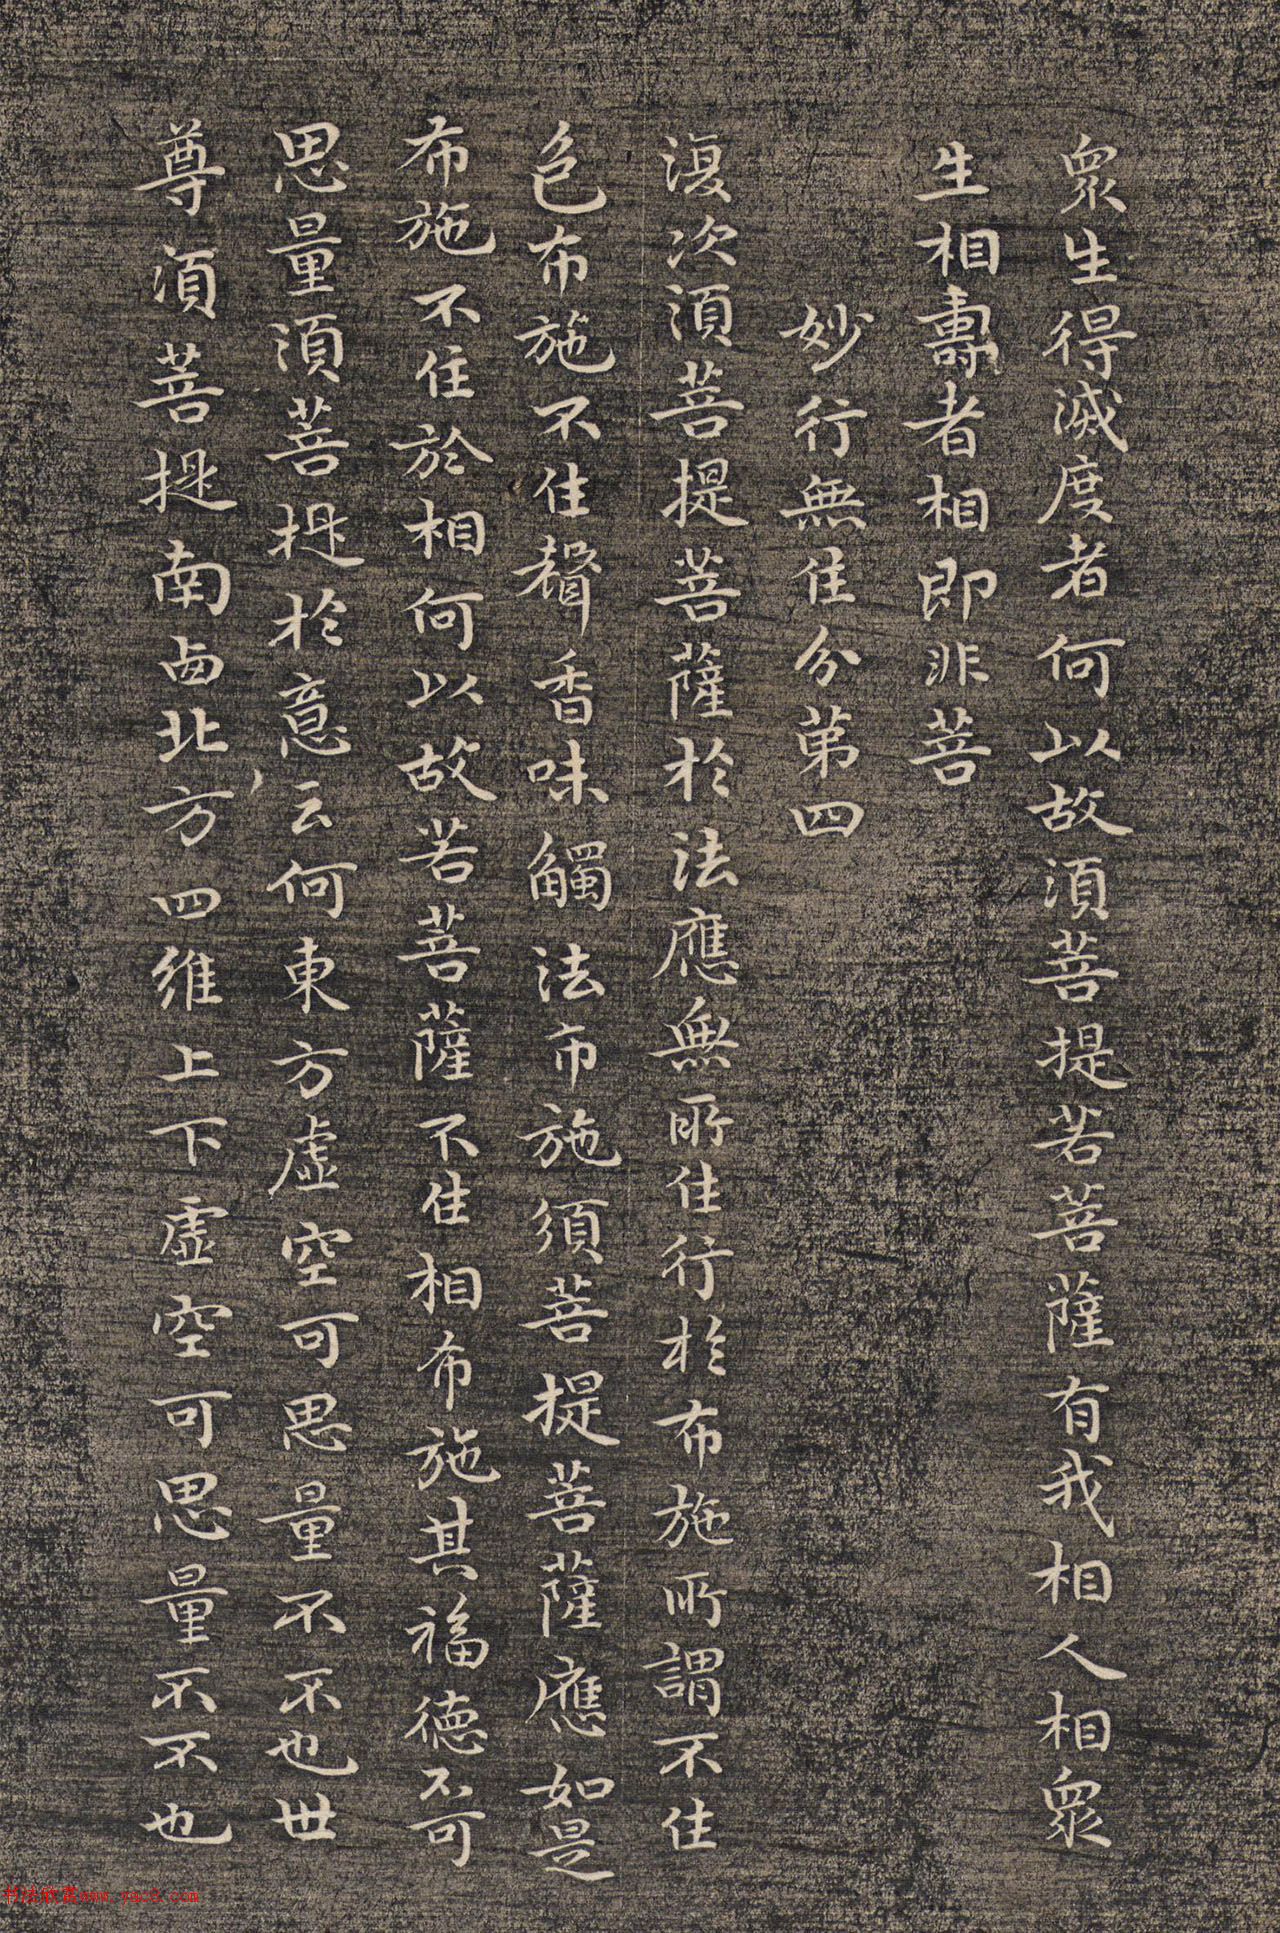 衆生得滅度者何以故須菩提若菩薩有我相人相衆
生相壽者相即非菩
妙行無住分第四
復次須菩提菩薩於法應無所住行於布施所謂不住
色布施不住聲香味觸法布施須菩提菩薩應如是
布施不住於相何以故若菩薩不住相布施其福德不可
思量須菩提於意云何東方虛空可思量不不也世
尊須菩提南西北方四維上下虛空可思量不不也
书法欣赏www.yac8.com